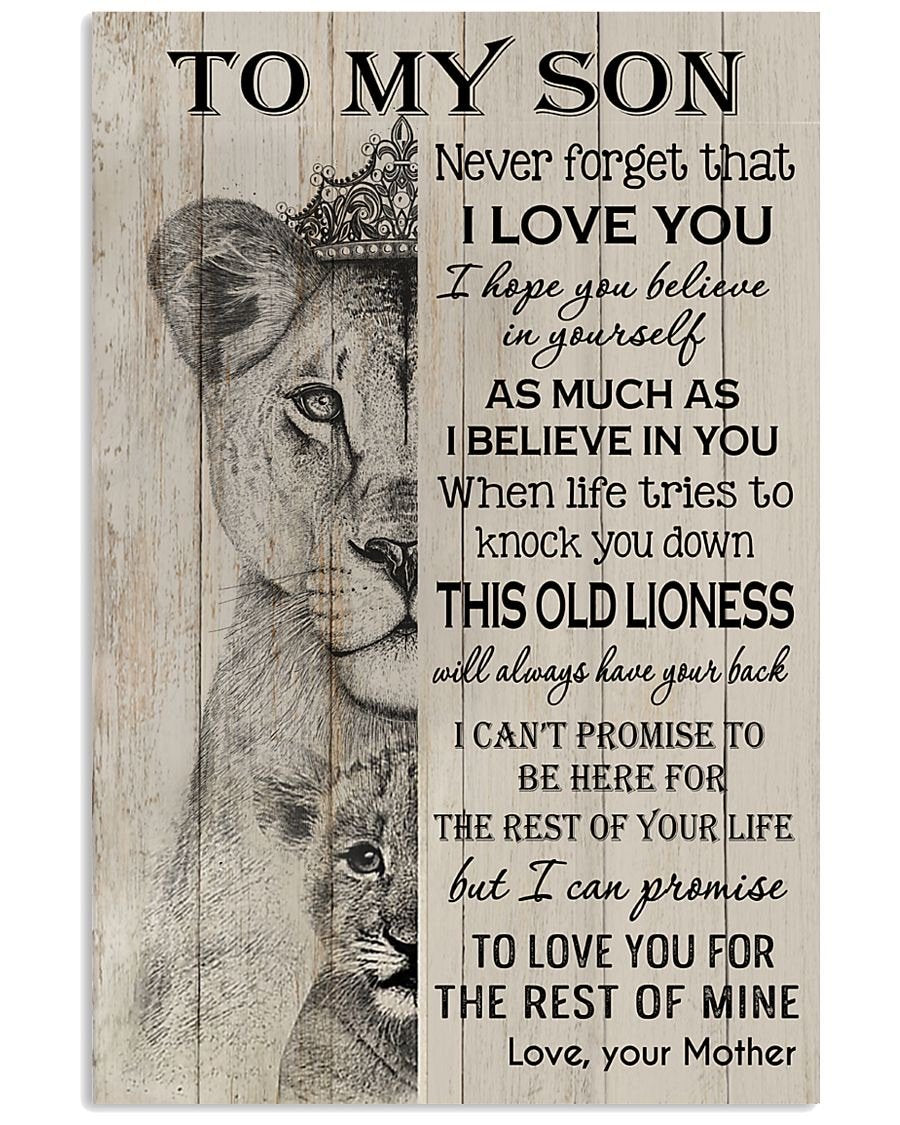 TO MY SON
Never forget that
I LOVE YOU
I hope you believe
in yourself
AS MUCH AS
I BELIEVE IN YOU
When life tries to
knock you down
THIS OLD LIONESS
will always have your back
I CAN'T PROMISE TO
BE HERE FOR
THE REST OF YOUR LIFE
but I can promise
TO LOVE YOU FOR
THE REST OF MINE
Love, your Mother